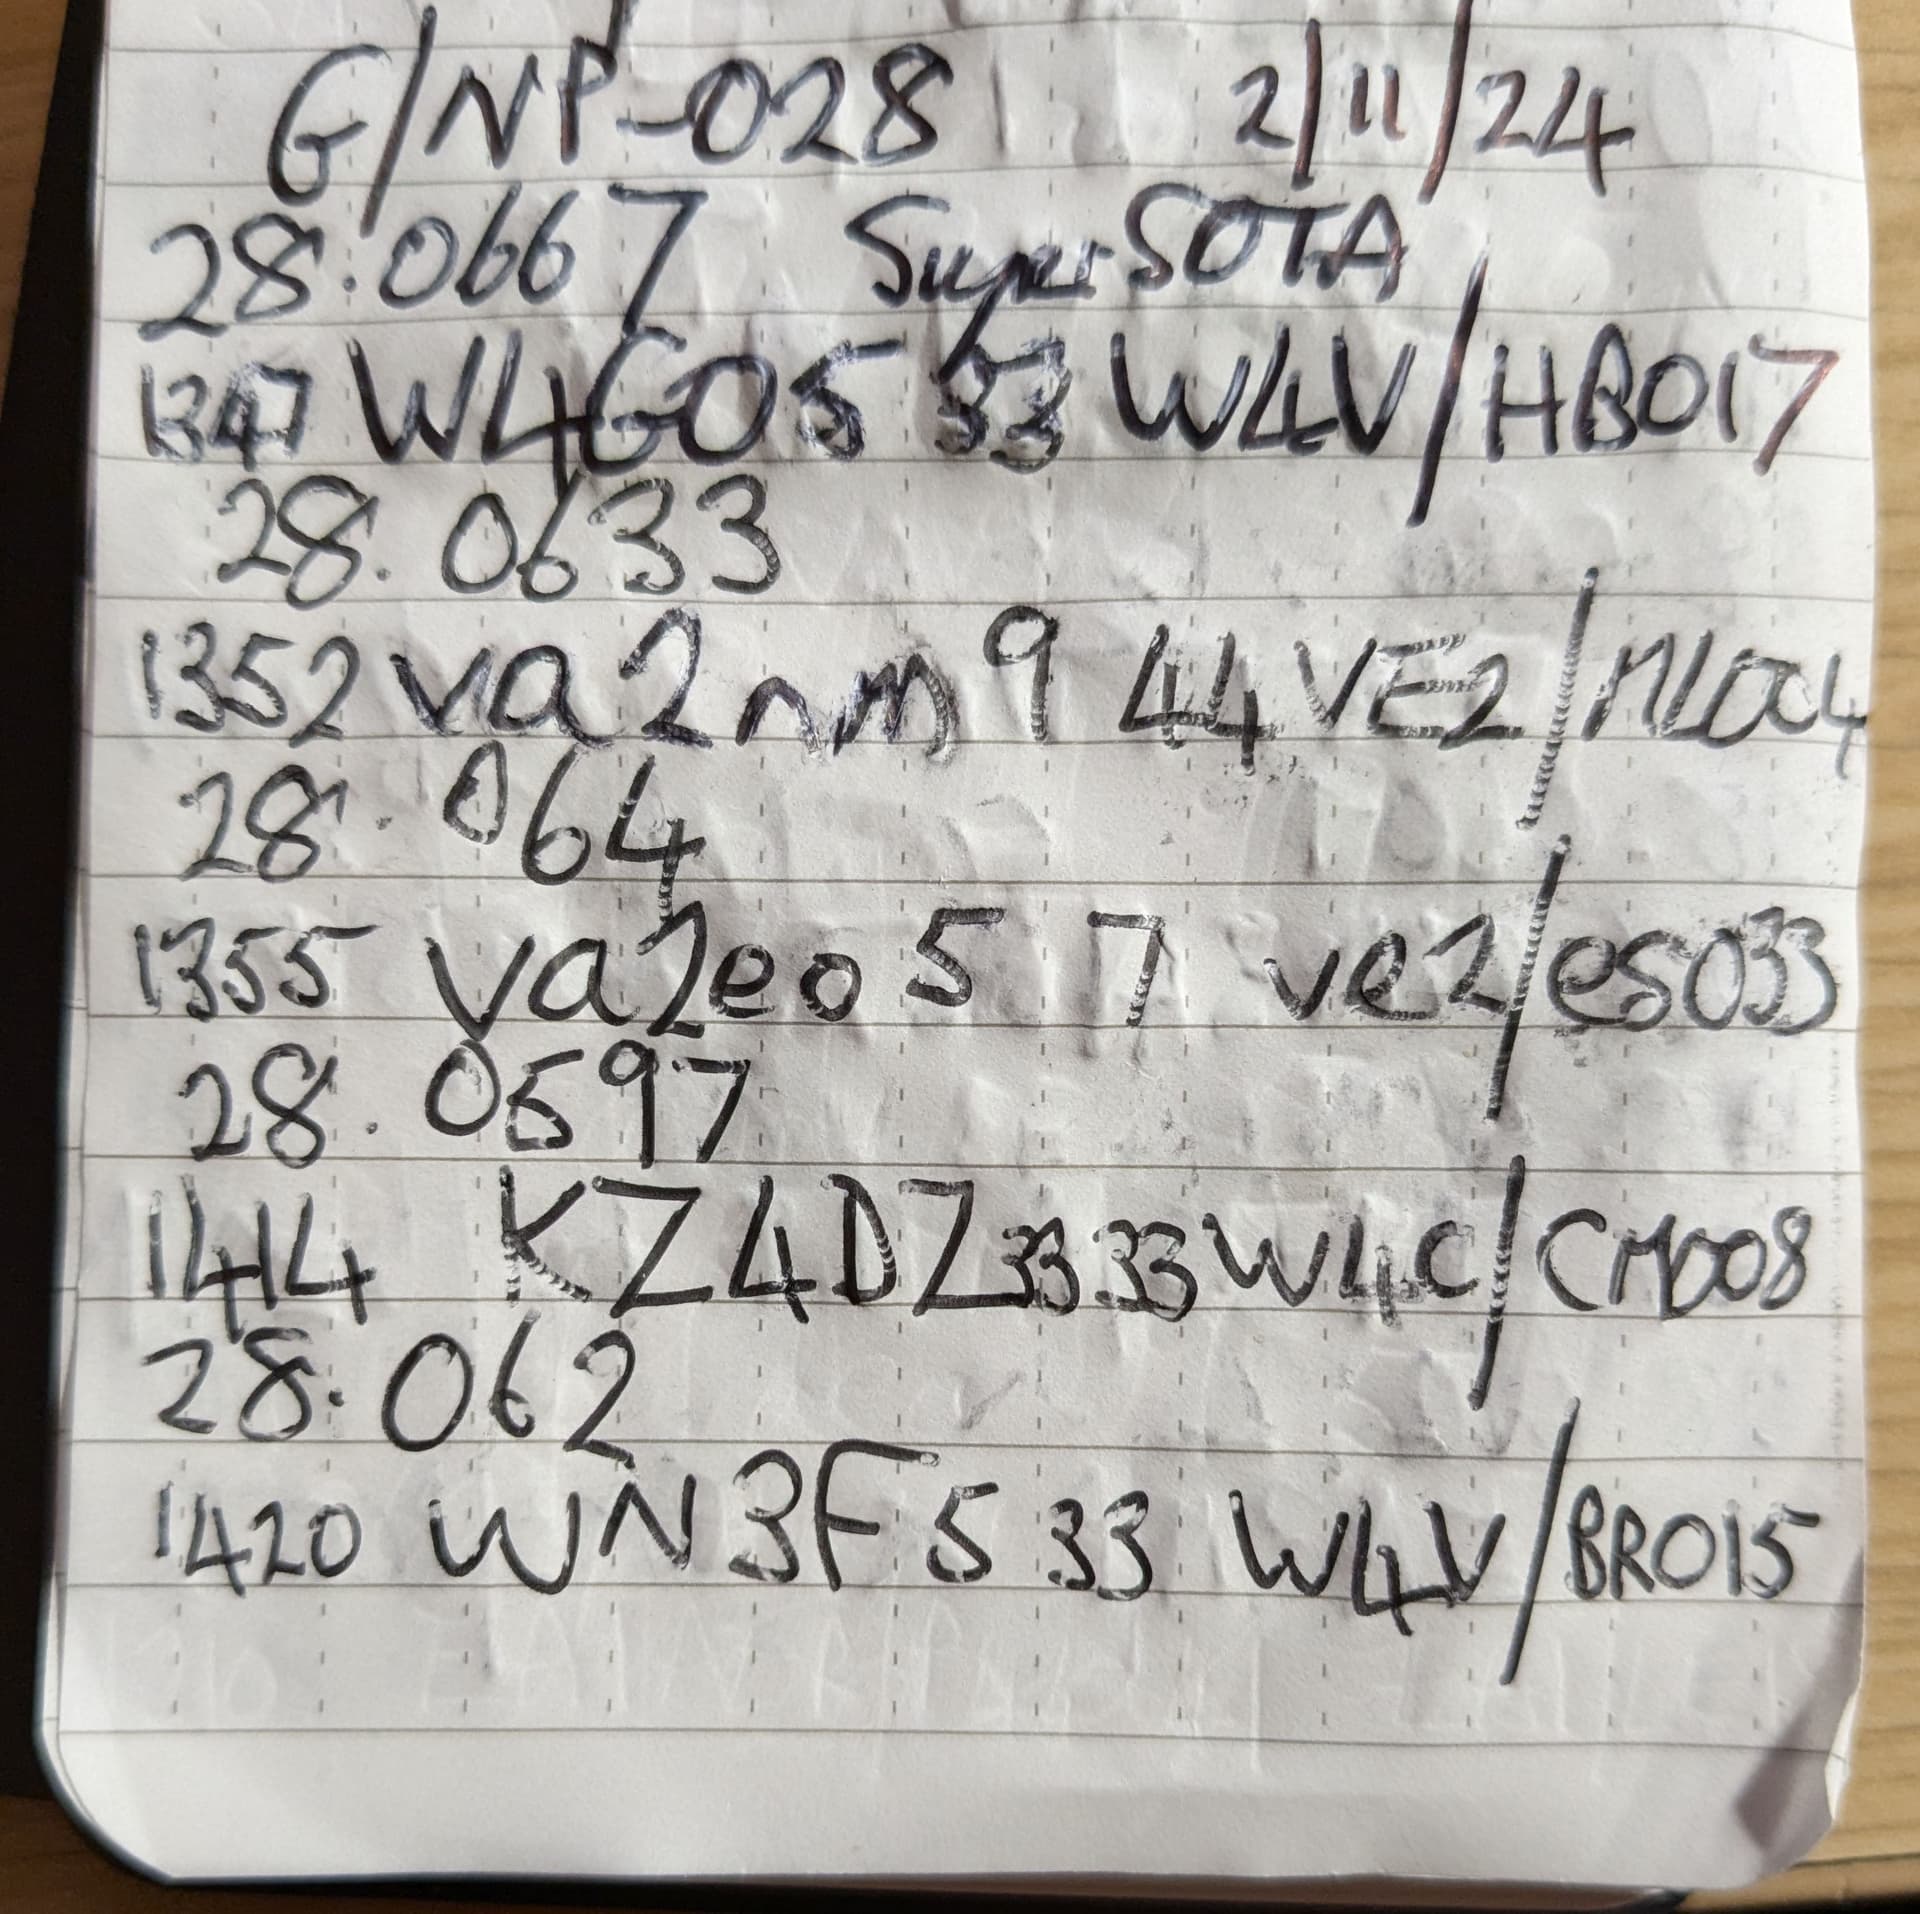 G/NP-028 2/11/24
28.0667 SuperSOTA
1347 W4GO 5 53 W4V/HB017
28.0633
1352 va2nm 9 44 VE2/ML004
28.064
1355 va2eo 5 7 ve2/es033
28.0597
1414 KZ4DZ 33 33 W4C/CM008
28.062
1420 WN3F 5 33 W4V/BR015